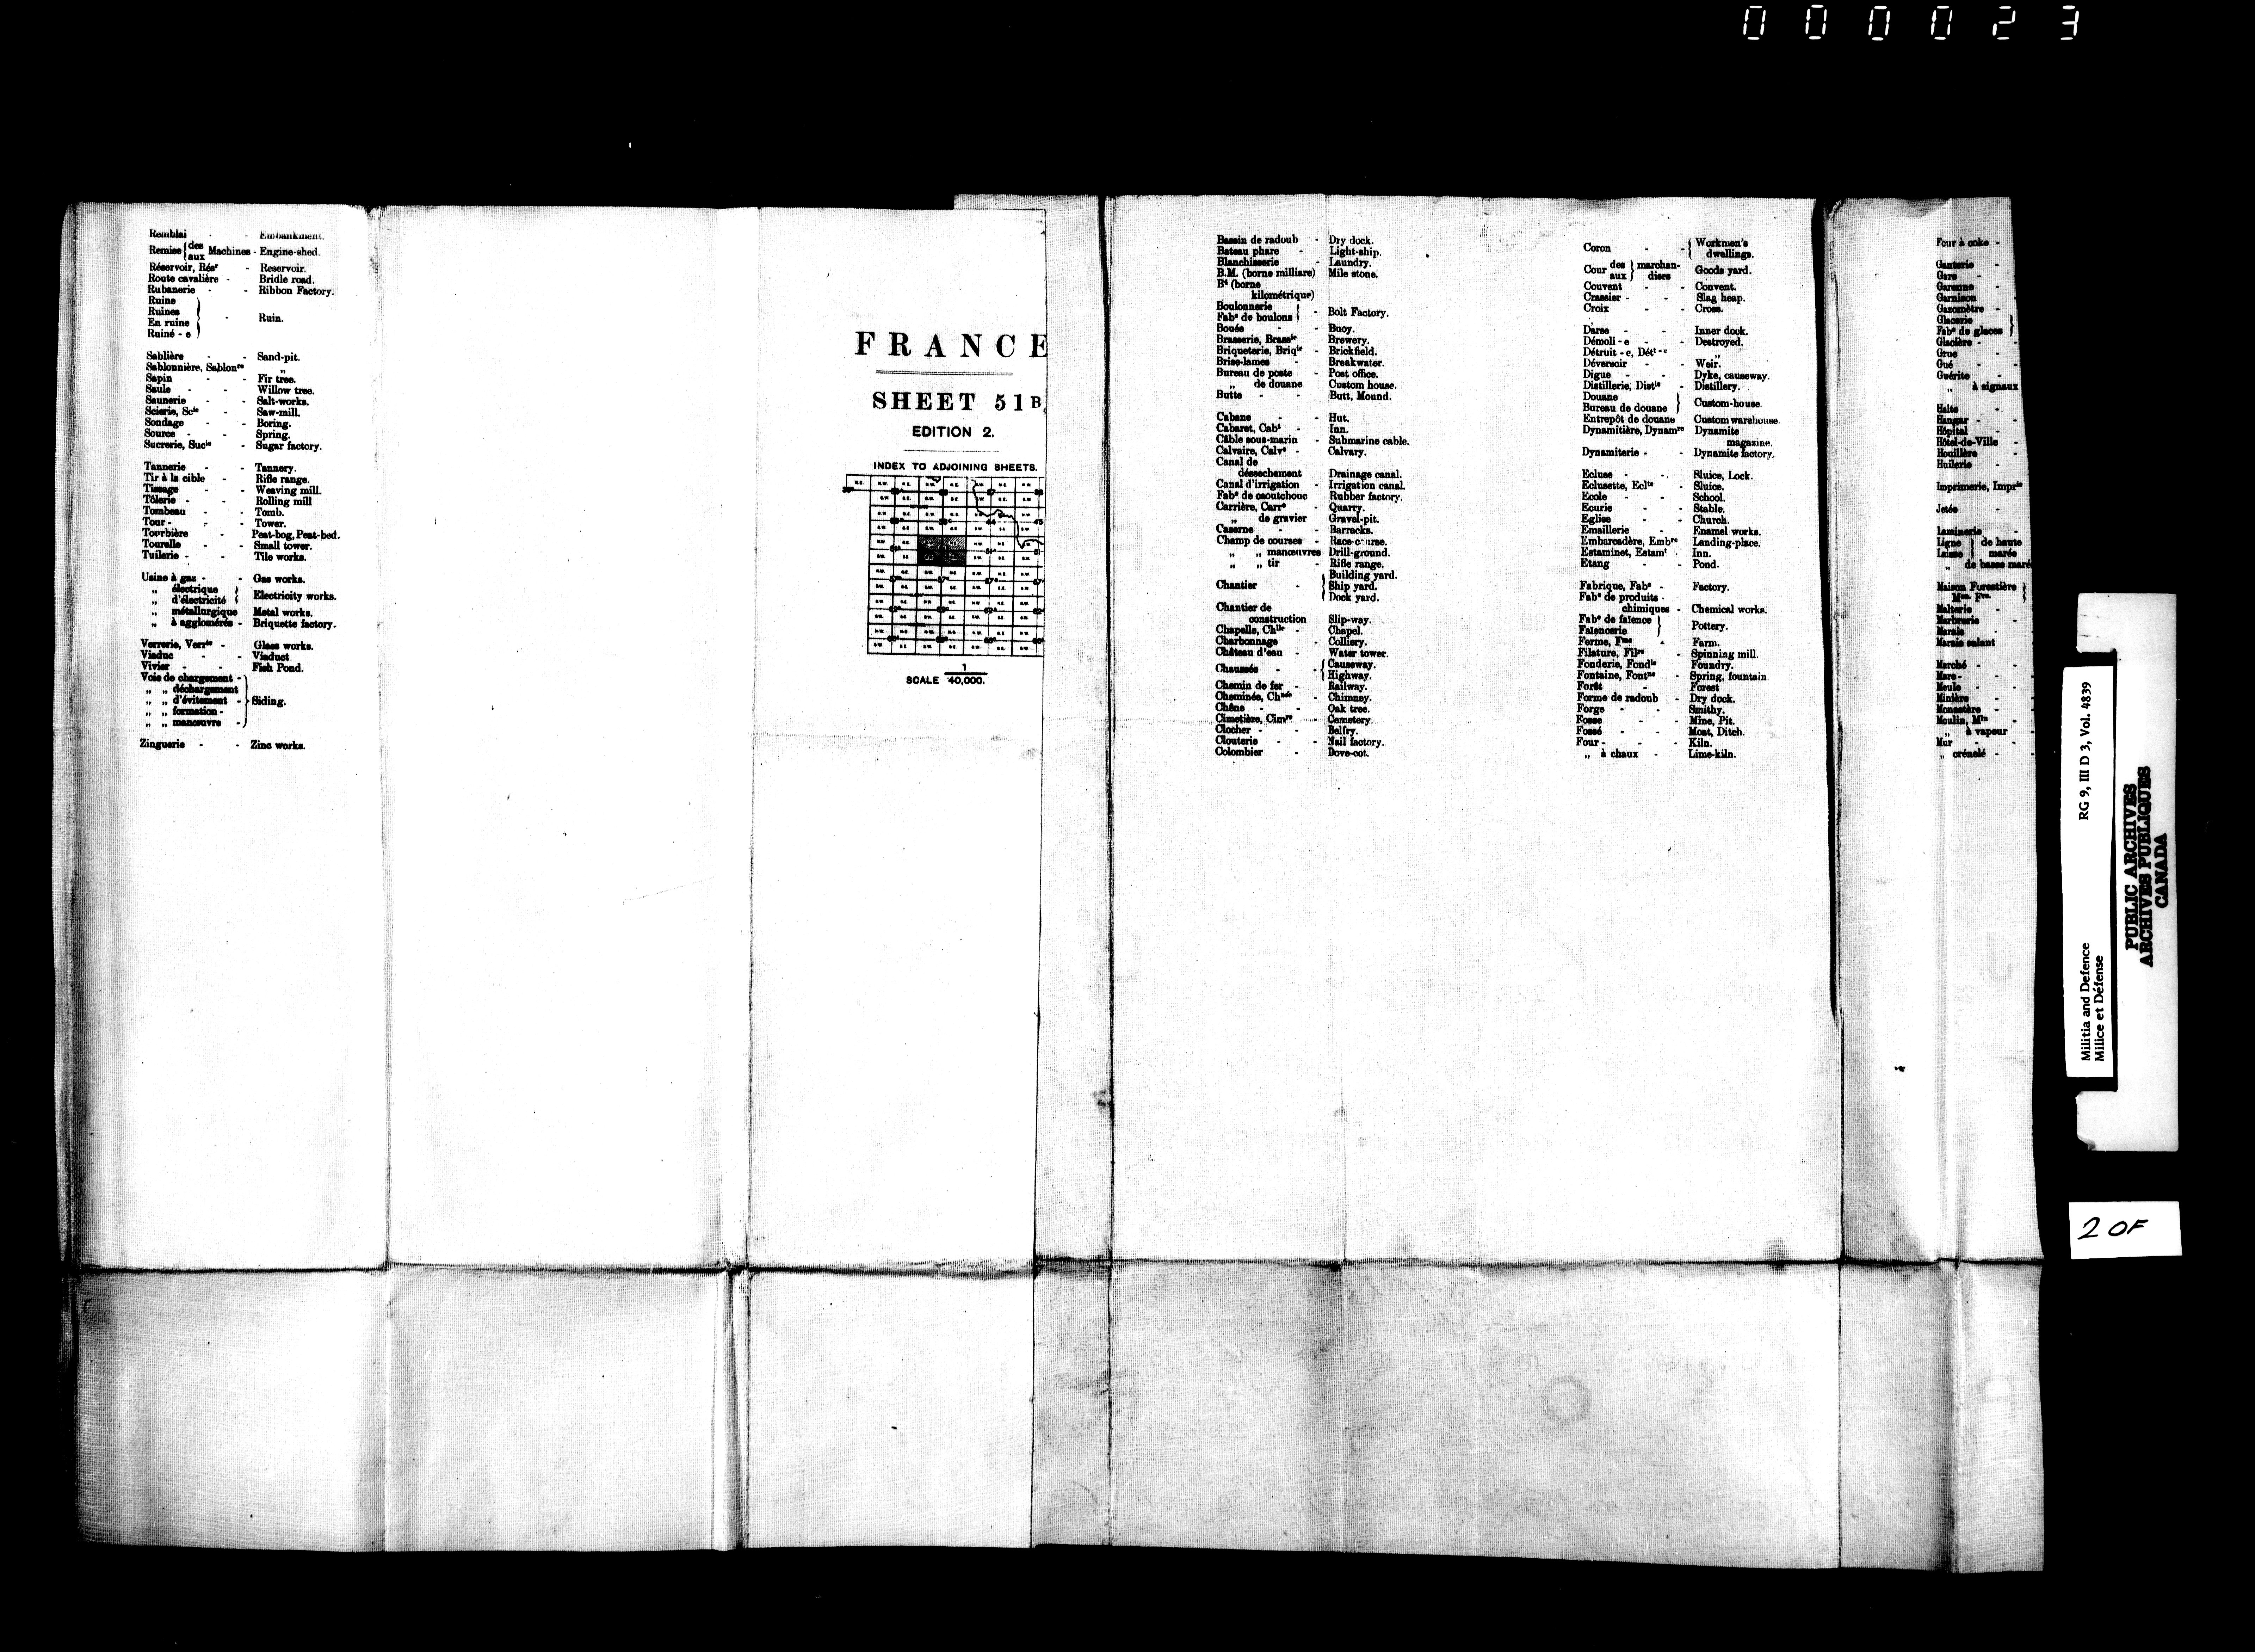 000023
Remblai - - Embankment.
Remise {des aux} Machines - Engine-shed.
Réservoir, Résr - Reservoir.
Route cavalière - Bridle road.
Rubanerie - - Ribbon Factory.
Ruine
Ruines
En ruine
Ruiné - e } - Ruin.
Sablière - - Sand-pit.
Sablonnière, Sablonre „
Sapin - - Fir tree.
Saule - - Willow tree.
Saunerie - - Salt-works.
Scierie, Scie - Saw-mill.
Sondage - - Boring.
Source - - Spring.
Sucrerie, Sucie - Sugar factory.
Tannerie - - Tannery.
Tir à la cible - Rifle range.
Tissage - - Weaving mill.
Tôlerie - - Rolling mill
Tombeau - - Tomb.
Tour - - - Tower.
Tourbière - Peat-bog, Peat-bed.
Tourelle - - Small tower.
Tuilerie - - Tile works.
Usine à gaz - - Gas works.
„ électrique
„ d'électricité } Electricity works.
„ métallurgique Metal works.
„ à agglomérés - Briquette factory.
Verrerie, Verrie - Glass works.
Viaduc - - Viaduct.
Vivier - - - Fish Pond.
Voie de chargement -
„ „ déchargement
„ „ d'évitement -
„ „ formation -
„ „ manœuvre - } Siding.
Zinguerie - - Zinc works.
FRANCE
SHEET 51B
EDITION 2.
INDEX TO ADJOINING SHEETS.
SCALE 1/40,000.
Bassin de radoub - Dry dock.
Bateau phare - Light-ship.
Blanchisserie - Laundry.
B.M. (borne milliare) Mile stone.
Bk (borne
kilométrique)
Boulonnerie
Fabe de boulons } - Bolt Factory.
Bouée - - Buoy.
Brasserie, Brassie - Brewery.
Briqueterie, Briqie - Brickfield.
Brise-lames - Breakwater.
Bureau de poste - Post office.
„ de douane Custom house.
Butte - - Butt, Mound.
Cabane - - Hut.
Cabaret, Cabt - Inn.
Câble sous-marin - Submarine cable.
Calvaire, Calve - Calvary.
Canal de
désséchement Drainage canal.
Canal d'irrigation - Irrigation canal.
Fabe de caoutchouc Rubber factory.
Carrière, Carre - Quarry.
„ de gravier Gravel-pit.
Caserne - - Barracks.
Champ de courses - Race-course.
„ „ manœuvres Drill-ground.
„ „ tir - Rifle range.
Chantier - { Building yard.
Ship yard.
Dock yard.
Chantier de
construction Slip-way.
Chapelle, Chlle - Chapel.
Charbonnage - Colliery.
Château d'eau - Water tower.
Chaussée - - { Causeway.
Highway.
Chemin de fer - Railway.
Cheminée, Chnée - Chimney.
Chêne - - Oak tree.
Cimetière, Cimre - Cemetery.
Clocher - - Belfry.
Clouterie - - Nail factory.
Colombier - Dove-cot.
Coron - - { Workmen's
dwellings.
Cour {des aux} marchandises Goods yard.
Couvent - - Convent.
Crassier - - Slag heap.
Croix - - Cross.
Darse - - Inner dock.
Démoli - e - - Destroyed.
Détruit - e, Dét t-e „
Déversoir - - Weir.
Digue - - Dyke, causeway.
Distillerie, Distie - Distillery.
Douane
Bureau de douane } Custom-house.
Entrepôt de douane Custom warehouse.
Dynamitière, Dynamre Dynamite
magazine.
Dynamiterie - - Dynamite factory.
Ecluse - - Sluice, Lock.
Eclusette, Eclte - Sluice.
Ecole - - School.
Ecurie - - Stable.
Eglise - - Church.
Emaillerie - Enamel works.
Embarcadère, Embre Landing-place.
Estaminet, Estamt - Inn.
Etang - - Pond.
Fabrique, Fabe - Factory.
Fabe de produits -
chimiques - Chemical works.
Fabe de faïence
Faïencerie } Pottery.
Ferme, Fme - Farm.
Filature, Filre - Spinning mill.
Fonderie, Fondie - Foundry.
Fontaine, Fontne - Spring, fountain
Forêt - Forest
Forme de radoub - Dry dock.
Forge - - Smithy.
Fosse - - Mine, Pit.
Fossé - - Moat, Ditch.
Four - - - Kiln.
„ à chaux - Lime-kiln.
Four à coke -
Ganterie -
Gare -
Garenne -
Garnison -
Gazomètre -
Glacerie
Fabe de glaces }
Glacière -
Grue -
Gué -
Guérite -
„ à signaux
Halte -
Hangar -
Hôpital -
Hôtel-de-Ville -
Houillère -
Huilerie -
Imprimerie, Imprie
Jetée -
Laminerie -
Ligne
Laisse } de haute
marée
„ de basse maré
Maison Forestière
Mon Fre }
Malterie -
Marbrerie -
Marais -
Marais salant
Marché -
Mare -
Meule -
Minière -
Monastère -
Moulin, Min -
„ à vapeur
Mur -
„ crénelé -
Militia and Defence RG 9, III D 3, Vol. 4839
Milice et Défense
PUBLIC ARCHIVES
ARCHIVES PUBLIQUES
CANADA
2 OF